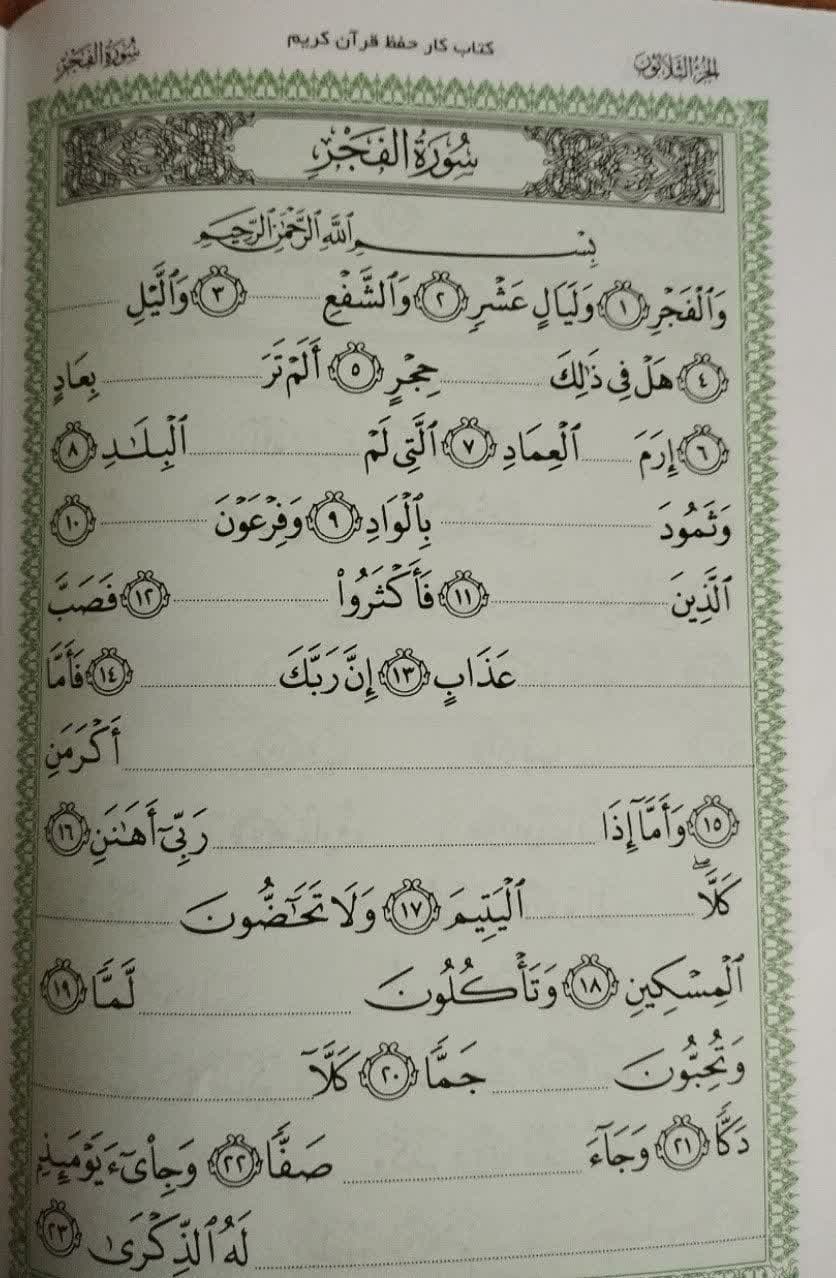 الجزء الثلاثون
كتاب کار حفظ قرآن کریم
سورة الفجر
سُورَةُ الفَجْرِ
بِسْمِ ٱللَّهِ ٱلرَّحْمَٰنِ ٱلرَّحِيمِ
وَٱلْفَجْرِ ١ وَلَيَالٍ عَشْرٍ ٢ وَٱلشَّفْعِ .......... ٣ وَٱلَّيْلِ ..........
٤ هَلْ فِى ذَٰلِكَ .......... حِجْرٍ ٥ أَلَمْ تَرَ .......... بِعَادٍ
٦ إِرَمَ .......... ٱلْعِمَادِ ٧ ٱلَّتِى لَمْ .......... ٱلْبِلَٰدِ ٨
وَثَمُودَ .......... بِٱلْوَادِ ٩ وَفِرْعَوْنَ .......... ١٠
ٱلَّذِينَ .......... ١١ فَأَكْثَرُوا۟ .......... ١٢ فَصَبَّ
.......... عَذَابٍ ١٣ إِنَّ رَبَّكَ .......... ١٤ فَأَمَّا
.......... أَكْرَمَنِ
١٥ وَأَمَّآ إِذَا .......... رَبِّىٓ أَهَٰنَنِ ١٦
كَلَّا ۖ .......... ٱلْيَتِيمَ ١٧ وَلَا تَحَٰٓضُّونَ ..........
ٱلْمِسْكِينِ ١٨ وَتَأْكُلُونَ .......... لَّمًّا ١٩
وَتُحِبُّونَ .......... جَمًّا ٢٠ كَلَّآ ..........
دَكًّا ٢١ وَجَآءَ .......... صَفًّا ٢٢ وَجِا۟ىٓءَ يَوْمَئِذٍۭ
.......... لَهُ ٱلذِّكْرَىٰ ٢٣